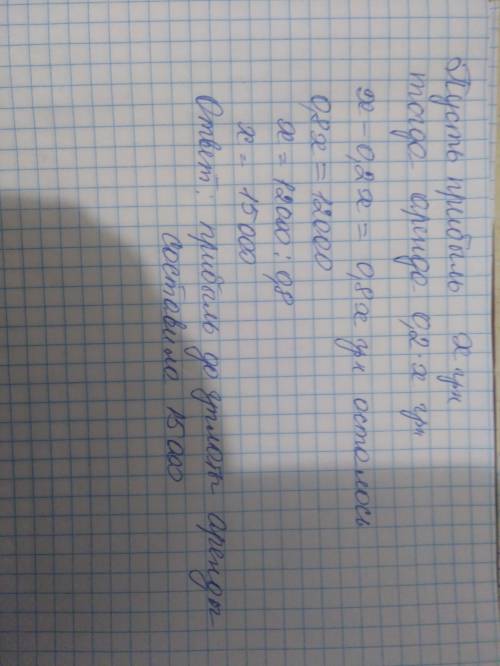 Пусть прибыль х грн
тогда аренда 0,2·х грн
х - 0,2х = 0,8х грн осталось
0,8х = 12000
х = 12000 : 0,8
х = 15000
Ответ: прибыль до уплаты аренды
составила 15 000